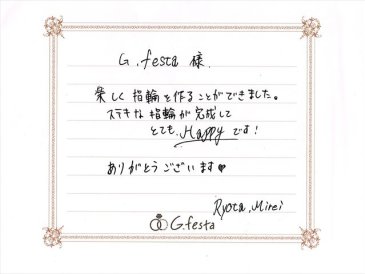 G.festa 様.
楽しく 指輪を作ることができました。
ステキな 指輪が完成して
とても Happy です!
ありがとうございます♥
Ryota.Mirei
G.festa